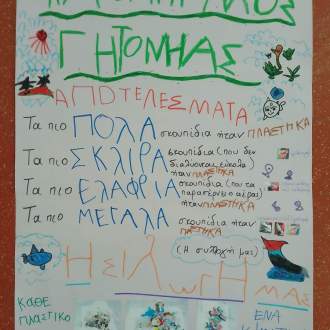 ΓΗΤΟΝΗΑΣ
ΑΠΟΤΕΛΕΣΜΑΤΑ
Τα πιο ΠΟΛΑ σκουπίδια ήταν ΠΛΑΣΤΙΚΑ
Τα πιο ΣΚΛΙΡΑ σκουπίδια (που δεν διαλύονται εύκολα) ήταν ΠΛΑΣΤΙΚΑ
Τα πιο ΕΛΑΦΡΙΑ σκουπίδια (που τα παρασέρνει ο αέρας) ήταν ΠΛΑΣΤΙΚΑ
Τα πιο ΜΕΓΑΛΑ σκουπίδια ήταν ΠΛΑΣΤΙΚΑ
(Η συλλογή μας)
ΜΑΣ
ΚΑΘΕ
ΠΛΑΣΤΙΚΟ
ΕΝΑ